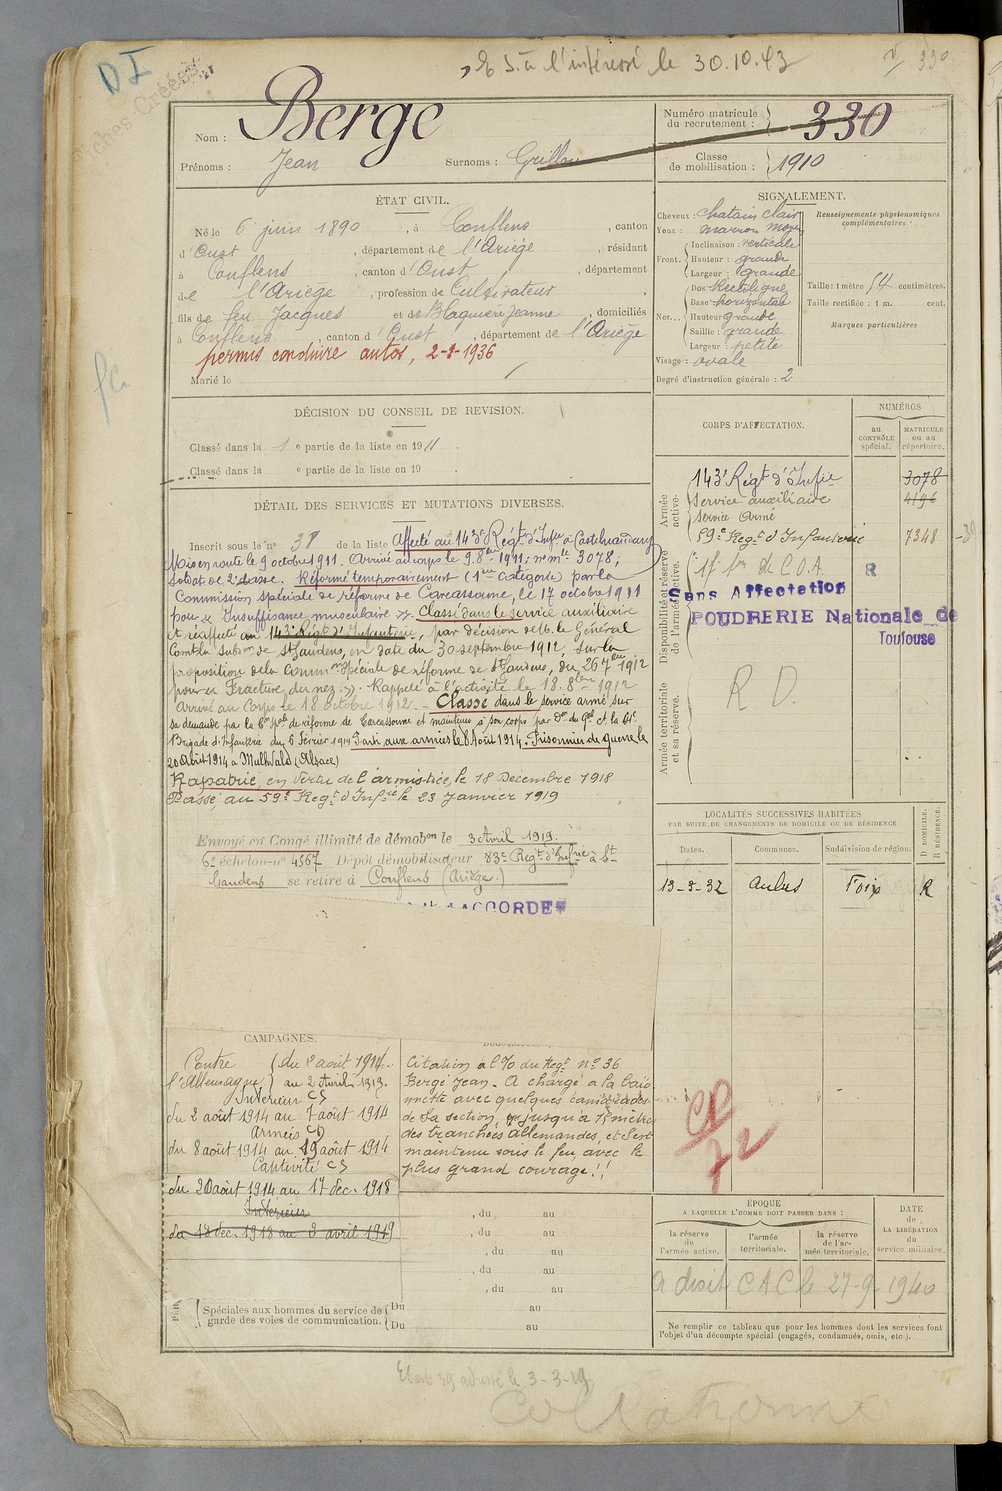 D I
Fiches Créées
E S. à l'intéressé le 30.10.43
330
Nom : Berge
Prénoms : Jean Surnoms : Grillou
Numéro matricule du recrutement : 330
Classe de mobilisation : 1910
ÉTAT CIVIL.
Né le 6 juin 1890, à Conflens, canton
d'Oust, département de l'Ariège, résidant
à Conflens, canton d'Oust, département
de l'Ariège, profession de Cultivateur
fils de feu Jacques et de Blaquière Jeanne, domiciliés
à Conflens, canton d'Oust, département de l'Ariège
permis conduire autos, 2-8-1936
Marié le
SIGNALEMENT.
Cheveux : chatain clair
Yeux : marron moyen
Front. Inclinaison : verticale
Hauteur : grande
Largeur : grande
Nez... Dos Rectiligne
Base horizontal
Hauteur grande
Saillie : grande
Largeur : petite
Visage : ovale
Degré d'instruction générale : 2
Renseignements physionomiques complémentaires :
Taille : 1 mètre 54 centimètres.
Taille rectifiée : 1 m. cent.
Marques particulières
DÉCISION DU CONSEIL DE REVISION.
Classé dans la 1e partie de la liste en 1911.
Classé dans la e partie de la liste en 19 .
DÉTAIL DES SERVICES ET MUTATIONS DIVERSES.
Inscrit sous le n° 38 de la liste Affecté au 143e Régt d'Infie à Castelnaudary
Mis en route le 9 octobre 1911. Arrivé au corps le 9 8bre 1911; n° mle 3078;
Soldat de 2e classe. Réformé temporairement (1ère catégorie) par la
Commission spéciale de réforme de Carcassonne, le 17 octobre 1911
pour « Insuffisance musculaire ». Classé dans le service auxiliaire
et réaffecté au 143e Régt d'Infanterie, par décision de M. le Général
Comt la Subon de St Gaudens, en date du 30 septembre 1912, sur la
proposition de la Common Spéciale de réforme de St Gaudens, du 26 7bre 1912
pour « Fracture du nez ». Rappelé à l'activité le 18. 8bre 1912
Arrivé au Corps le 18 octobre 1912. - Classé dans le service armé sur
sa demande par la Con spale de réforme de Carcassonne et maintenu à son corps par Don du Gal Ct la 64e
Brigade d'Infanterie du 6 Février 1914 Parti aux armées le 8 Août 1914. Prisonnier de guerre le
20 Août 1914 à Mulhvald (Alsace)
Rapatrié, en vertu de l'armistice, le 18 Décembre 1918
Passé au 59e Regt d'Infie le 23 Janvier 1919
Envoyé en Congé illimité de démobon le 3 Avril 1919.
6e échelon n° 4567 Dépôt démobilisateur 83e Regt d'Infie à St
Gaudens se retire à Conflens (Ariège.)
ACCORDEE
CORPS D'AFFECTATION.
NUMÉROS
au CONTRÔLE spécial.
MATRICULE ou au répertoire.
Armée active.
143e Régt d'Infie 3078
Service auxiliaire 4196
Service Armé
59e Regt d'Infanterie 7348
Disponibilité et réserve de l'armée active.
17e Son de C.O.A. R
Sans Affectation
POUDRERIE Nationale de
Toulouse
Armée territoriale et sa réserve.
R D.
LOCALITÉS SUCCESSIVES HABITÉES
PAR SUITE DE CHANGEMENTS DE DOMICILE OU DE RÉSIDENCE
Dates. Communes. Subdivision de région. D. DOMICILE. R. RÉSIDENCE.
13-3-32 Aulus Foix R
CAMPAGNES.
Contre l'Allemagne du 2 août 1914.
au 2 Avril 1919.
Intérieur CS
du 2 août 1914 au 7 août 1914
Armées CD
du 8 août 1914 au 19 août 1914
Captivité CS
du 20 août 1914 au 17 dec. 1918
Intérieur
du 18 dec. 1918 au 3 avril 1919
Citation à l'O. du Regt n° 36
Bergé Jean. A chargé à la baïo-
nnette avec quelques camarades
de sa section, jusqu'à 15 mètres
des tranchées allemandes, et s'est
maintenu sous le feu avec le
plus grand courage!!
, du au
, du au
, du au
, du au
, du au
Spéciales aux hommes du service de garde des voies de communication. Du au
Du au
CP
72
ÉPOQUE
A LAQUELLE L'HOMME DOIT PASSER DANS :
la réserve de l'armée active.
l'armée territoriale.
la réserve de l'armée territoriale.
DATE de LA LIBÉRATION du service militaire.
a droit CAC le 27-9 1940
Ne remplir ce tableau que pour les hommes dont les services font
l'objet d'un décompte spécial (engagés, condamnés, omis, etc.).
Etat 39 adressé le 3-3-29
Collationné